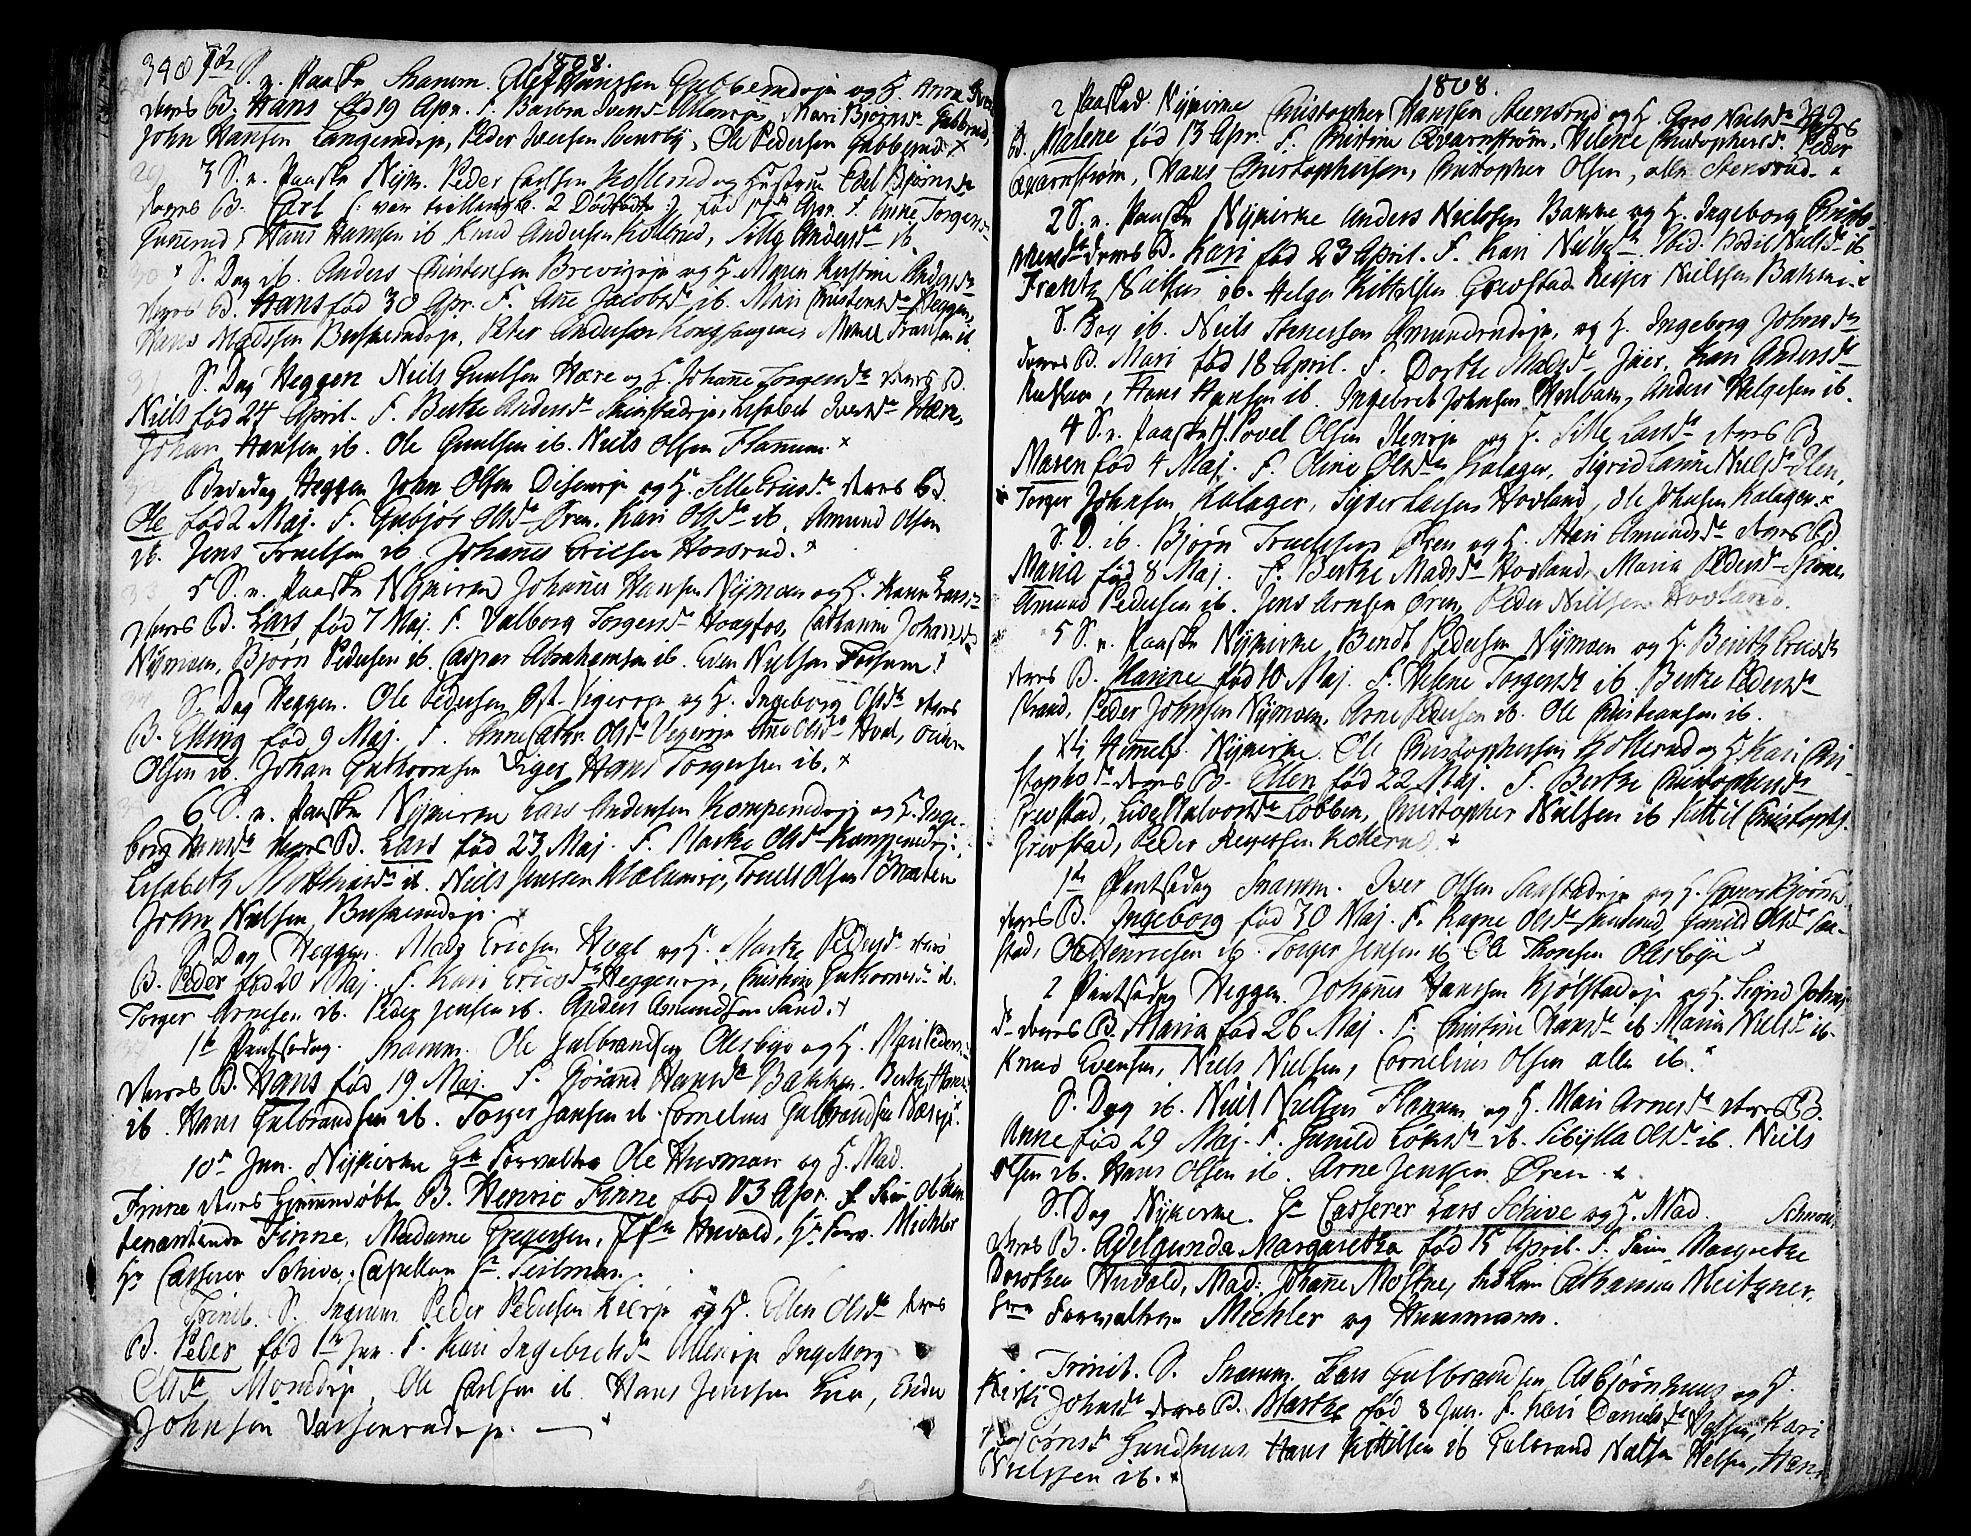 348
1808.
1ste S. n. Paaske Snarum. Olef Hanssen Gubberudeje og H. Anna Iver
deres B. Hans fød 19 Apr. F. Barbra Iversd. Ullereje, Mari Bjørnsd. Gubberud,
John Hansen Langerudeje, Peder Iversen Svensby, Ole Pedersen Gubberud.
3 S. n. Paaske Nyk. Peder Carlsen Kollerud og Hustrue Edel Bjørnsd.
deres B. Carl (: var trelling 2 Dødfødte :) fød Apr. F. Anne Torgersd.
Gunerud, Hans Hansen ib. Knud Andersen Kollerud, Sille Andersd. ib.
S. Dag ib. Anders Christensen Brevigeje og H. Maren Kirstine Andersd.
deres B. Hans fød 30 Apr. F. Ane Jacobsd. ib. Mari Christensd. Heggen,
Hans Madssen Buskerudeje, Peter Andersen Kongssogenes Fransen ib.
S. Dag Heggen Niels Gulsen Hære og H. Johane Torgersd. deres B.
Niels fød 24 April. F. Berthe Andersd. Skinstadeje, Lisabet Iversd. Hære,
Johan Hansen ib. Ole Gulsen ib. Niels Olsen Flannum.
Bededag Heggen John Olsen Diserudeje og H. Sille Ericsd. deres B.
Ole fød 2 Maj. F. Gubjør Olsd. Øren. Kari Olsd. ib. Amund Olsen
ib. Jens Truelsen ib. Johannes Ericsen Horsrud.
5 S. n. Paaske Nykirke Johanes Hansen Nymoen og H. Karen Larsd.
deres B. Lars fød 7 Maj. F. Valborg Torgersd. Hougfos, Cathrine Johannesd.
Nymoen, Bjørn Pedersen ib. Casper Abrahamsen ib. Even Nielsen Fossum.
S. Dag Heggen. Ole Pedersen Øst Vigereje og H. Ingeborg Olsd. deres
B. Elling fød 9 Maj. F. Anne Cathr. Olsd. Vegereje Ane Olsd. Hoel,
Olsen ib. Johan Guthormsen Viger, Hans Torgersen ib.
6 S. n. Paaske Nykirke Lars Andersen Komperudeje og H. Inge-
borg Hansd. deres B. Lars fød 23 Maj. F. Marthe Olsd. Komperudeje,
Lisabeth Mathiasd. ib. Niels Jenssen Mælumeje, Truels Olsen Braaten
John Nielsen Buskerudeje.
S. Dag Heggen. Mads Ericsen Hoel og H. Marthe Pedersd. deres
B. Peder fød 20 Maj. F. Kari Ericsd. Heggeneje, Christine Guthormsd. ib.
Torger Arnesen ib. Peder Jensen ib. Anders Asmundsen Sand.
1ste Pintsedag. Snarum. Ole Gulbrandsen Olesbye og H. Mari Pedersd.
deres B. Hans fød 19 Maj. F. Gjørand Hansd. Bakken. Berthe Hansd.
ib. Hans Gulbrandsen ib. Torger Jansen ib. Cornelius Gulbrandsen Næseje.
10de Jun. Nykirke Hr. Forvalter Ole Husman og H. Mad.
Finne deres hjemmedøbte B. Henric Finne fød 13 Apr. F.
tenantinde Finne, Madame Gregersen, Huvald, Hr. Forv. Michler
Hr. Casserer Schive, Capellan Hr. Teilman.
Trinit. S. Snarum Peder Pedersen Kiereje og H. Ellen Olsd. deres
B. Peder fød 1ste Jun. F. Kari Ingebretsd. Ullereje Ingeborg
Olsd. Moredeje, Ole Carlsen ib. Hans Jenssen Lia, Endre
Johnsen Vassenrudeje.
1808.
349
2 Paasked. Nykirke Christopher Hansen Steensrud og H. Goro Nielsd. deres
B. Marene fød 13 Apr. F. Christine Qvarnstrøm, Helene Christophersd. Peder
Qvarnstrøm, Hans Christophersen, Christopher Olsen, alle Stensrud.
2 S. n. Paaske Nykirke Anders Nielssen Bakke og H. Ingeborg Christo-
phersd. deres B. Kari fød 23 April. F. Kari Nielsd. Ibid. Bodil Nielsd. ib
Frantz Nielsen ib. Helge Kittelsen Grevstad Reyer Nielssen Bakke.
S. Dag ib. Niels Steensen Amunderudeje, og H. Ingeborg Johnsd.
deres B. Mari fød 18 April. F. Dorthe Madsd. Jüer, Kari Andersd.
Hans Hansen ib. Ingebret Johnsen Horbum, Anders Helgesen ib.
4 S. n. Paaske H. Povel Olsen og H. Sille Larsd. deres B
Maren fød 4 Maj. F. Oline Olsd. Kalager, Sigrid Lasine Nielsd.
Torger Johnsen Kalager, Syver Larsen Hovland, Ole Johnsen Kalager.
S. D. ib. Bjørn Truelssen Øren og H. Mari Amundsd. deres B.
Maria fød 8 Maj. F. Berthe Madsd. Hovland, Maria Pedersd.
Amund Pedersen ib. Jens Arnsen Øren, Peder Nielsen Hovland.
5 S. n. Paaske Nykirke Bendt Pedersen Nymoen og H. Berith Ericsd.
deres B. Karine fød 10 Maj. F. Helene Torgersd. ib. Berthe Pedersd.
Strand, Peder Johnsen Nymoen, Arne Pedersen ib. Ole Christiansen ib.
Xti Himmelf. Nykirke. Ole Christophersen Kollerud og H. Kari Chri-
stophsd. deres B. Ellen fød 22 Maj. F. Berthe Christophersd.
Grevstad, Halvorsd. Lobben, Christopher Nielsen ib Kittil Christophs.
Grevstad, Peder Reyersen Kollerud.
1ste Pintsedag Snarum. Iver Olsen Saastadeje og H. Bjørnsd.
deres B. Ingeborg fød 30 Maj. F. Ragne Olsd. Gunild Olsd. Saa-
stad, Ole Henricsen ib. Torger Jensen ib. Ole Thoresen Olesbye
2 Pintsedag Heggen. Johanes Hanssen Kjølstadeje og H. Sigrid Johns-
d. deres B. Maria fød 26 Maj. F. Christine Hansd. ib Maria Nielsd. ib.
Knud Evensen, Niels Nielsen, Cornelius Olsen alle ib.
S. Dag ib. Niels Nielsen Flannum og H. Mari Arnesd. deres B.
Anne fød 29 Maj. F. Gunild Larsd. ib. Sibylla Olsd. ib. Niels
Olsen ib. Hans Olsen ib. Arne Jenssen Øren.
S. Dag Nykirke. Hr. Casserer Lars Schive og H. Mad.
deres B. Adelgunda Margaretha fød 15 April. F. Margrethe
Dorothea Huvald, Mad: Johane Mostue, Cathrina Meitzner.
Herr Forvaltere Michler og Huusmann.
Trinit. S. Snarum. Lars Gulbrandsen Asbjørnhuus og H.
Kirsti Johnsd. deres B. Marthe fød 8 Jun. F. Kari Danielsd. Hølsen, Kari
Bjørnsd. Hans Kittilsen ib Gulbrand Nielsen Helsen, Hans
Nielssen ib.